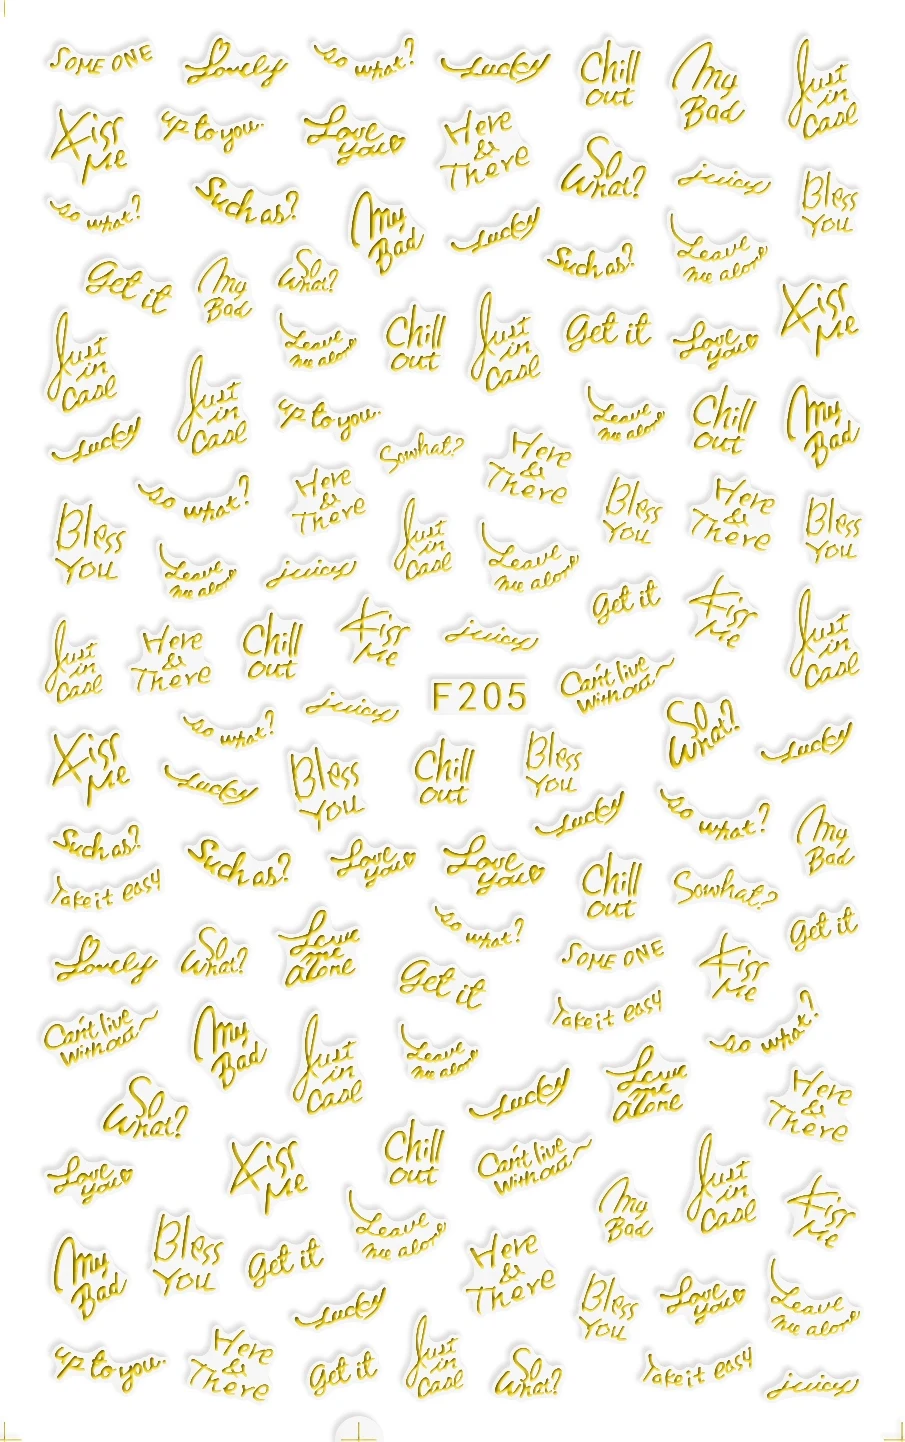 SOME ONE
Lovely
so what?
Lucky
Chill
out
My
Bad
Just
in
Case
Kiss
Me
up to you.
Love
you
Here
&
There
So
What?
juicy
Bless
You
so what?
Such as?
My
Bad
Lucky
Such as?
Leave
me alone
Get it
My
Bad
So
What?
Kiss
Me
Just
in
Case
Leave
me alone
Chill
out
Just
in
Case
Get it
Love
you
Just
in
Case
up to you.
Leave
me alone
Chill
out
My
Bad
Lucky
So what?
Here
&
There
so what?
Here
&
There
Bless
You
Here
&
There
Bless
You
Bless
You
Just
in
Case
Leave
me alone
juicy
Leave
me alone
Get it
Kiss
Me
Just
in
Case
Just
in
Case
Here
&
There
Chill
out
Kiss
Me
juicy
Can't live
Without
juicy
F205
so what?
So
What?
Lucky
Kiss
Me
Lucky
Bless
You
Chill
out
Bless
You
Lucky
so what?
My
Bad
Such as?
Such as?
Love
you
Love
you
Chill
out
So what?
Take it easy
Get it
Lovely
So
What?
Leave
me
alone
so what?
SOME ONE
Kiss
Me
Get it
Can't live
Without
My
Bad
Just
in
Case
Leave
me alone
Take it easy
so what?
So
What?
Lucky
Leave
me
alone
Here
&
There
Love
you
Kiss
Me
Chill
out
Can't live
Without
My
Bad
Just
in
Case
Kiss
Me
My
Bad
Bless
You
Get it
Leave
me alone
Here
&
There
Bless
You
Love
you
Leave
me alone
Lucky
up to you.
Here
&
There
Get it
Just
in
Case
So
What?
Take it easy
juicy